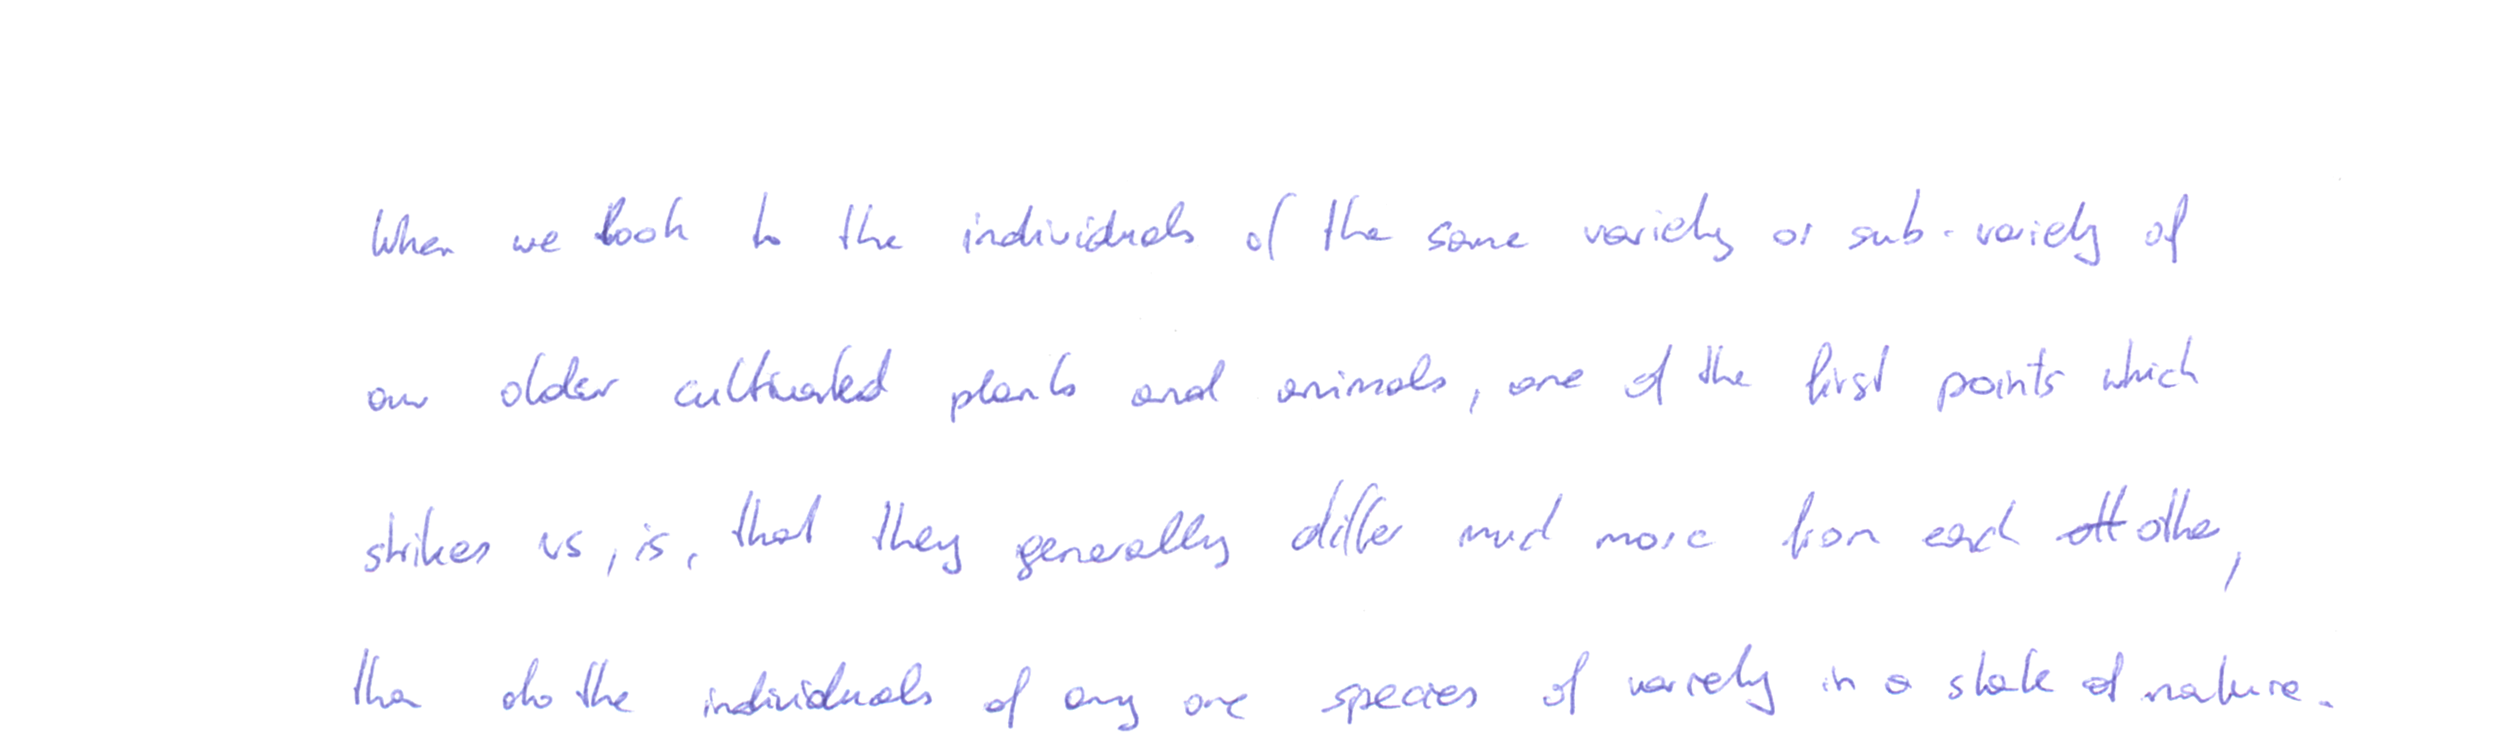 When we look to the individuals of the same variety or sub-variety of
our older cultivated plants and animals, one of the first points which
strikes us, is, that they generally differ much more from each other,
than do the individuals of any one species of variety in a state of nature.